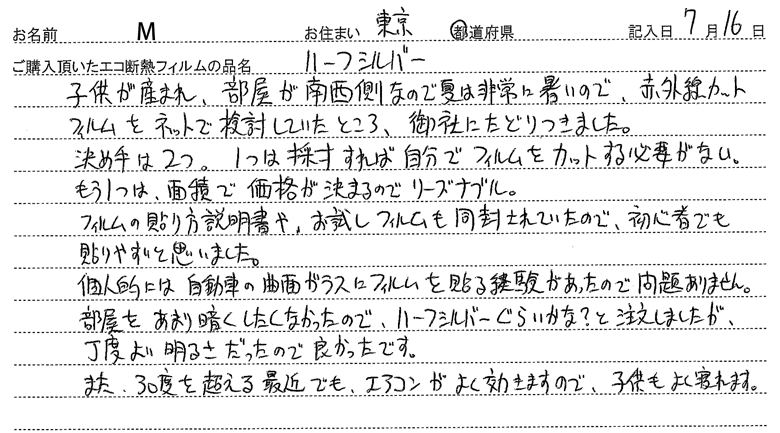 お名前 M お住まい 東京 都道府県 記入日 7月16日
ご購入頂いたエコ断熱フィルムの品名 ハーフシルバー
子供が産まれ、部屋が南西側なので夏は非常に暑いので、赤外線カット
フィルムをネットで検討していたところ、御社にたどりつきました。
決め手は2つ。1つは採寸すれば自分でフィルムをカットする必要がない。
もう1つは、面積で価格が決まるのでリーズナブル。
フィルムの貼り方説明書や、お試しフィルムも同封されていたので、初心者でも
貼りやすいと思いました。
個人的には自動車の曲面ガラスにフィルムを貼る経験があったので問題ありません。
部屋をあまり暗くしたくなかったので、ハーフシルバーぐらいかな?と注文しましたが、
丁度よい明るさだったので良かったです。
また、30度を超える最近でも、エアコンがよく効きますので、子供もよく寝れます。